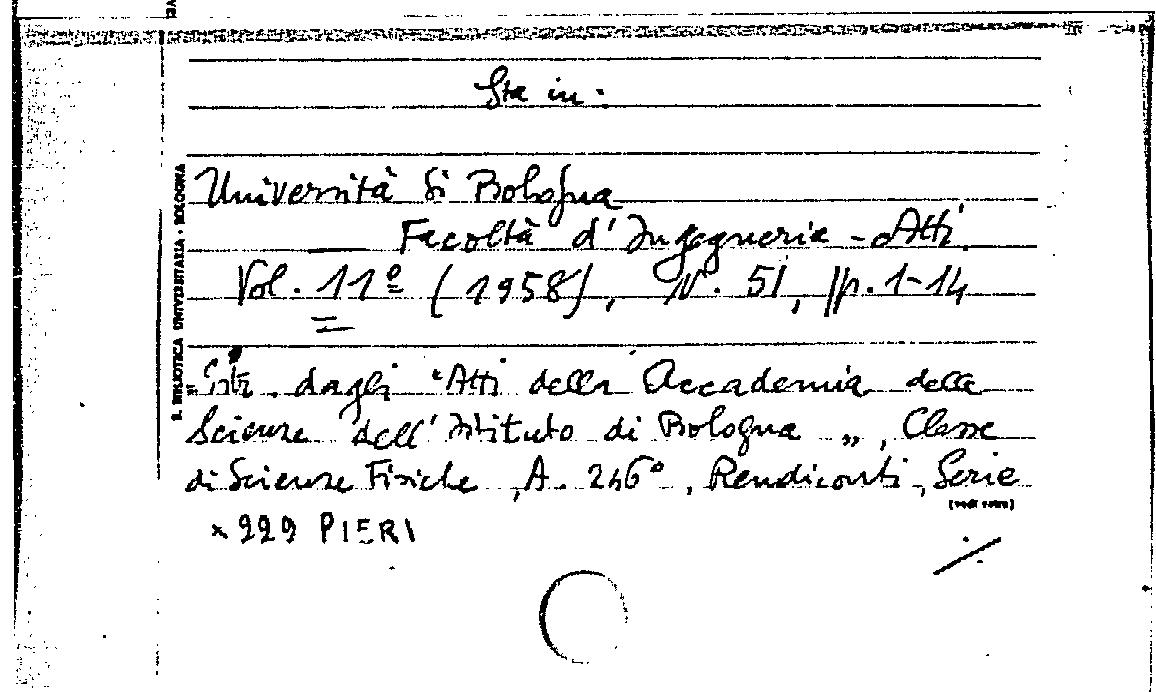 Sta in:
Università di Bologna
— Facoltà d'Ingegneria - Atti.
Vol. 11º (1958), N. 51, pp. 1-14
Estr. dagli "Atti della Accademia delle
Scienze dell'Istituto di Bologna „, Classe
di Scienze Fisiche, A. 246°, Rendiconti, Serie
(vedi retro)
x 229 PIERI
R. BIBLIOTECA UNIVERSITARIA - BOLOGNA